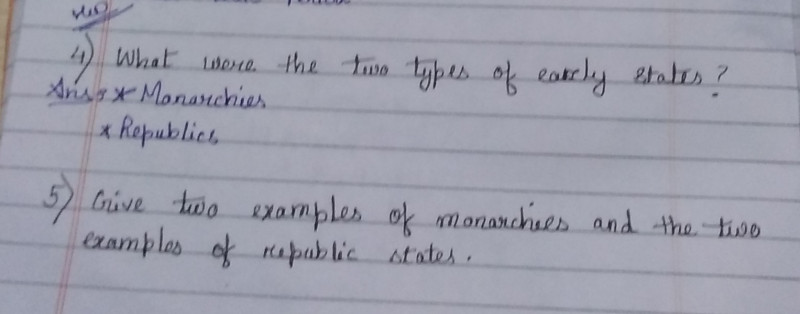 4) What were the two types of early states?
Ans :- * Monarchies
* Republics
5) Give two examples of monarchies and the two
examples of republic states.